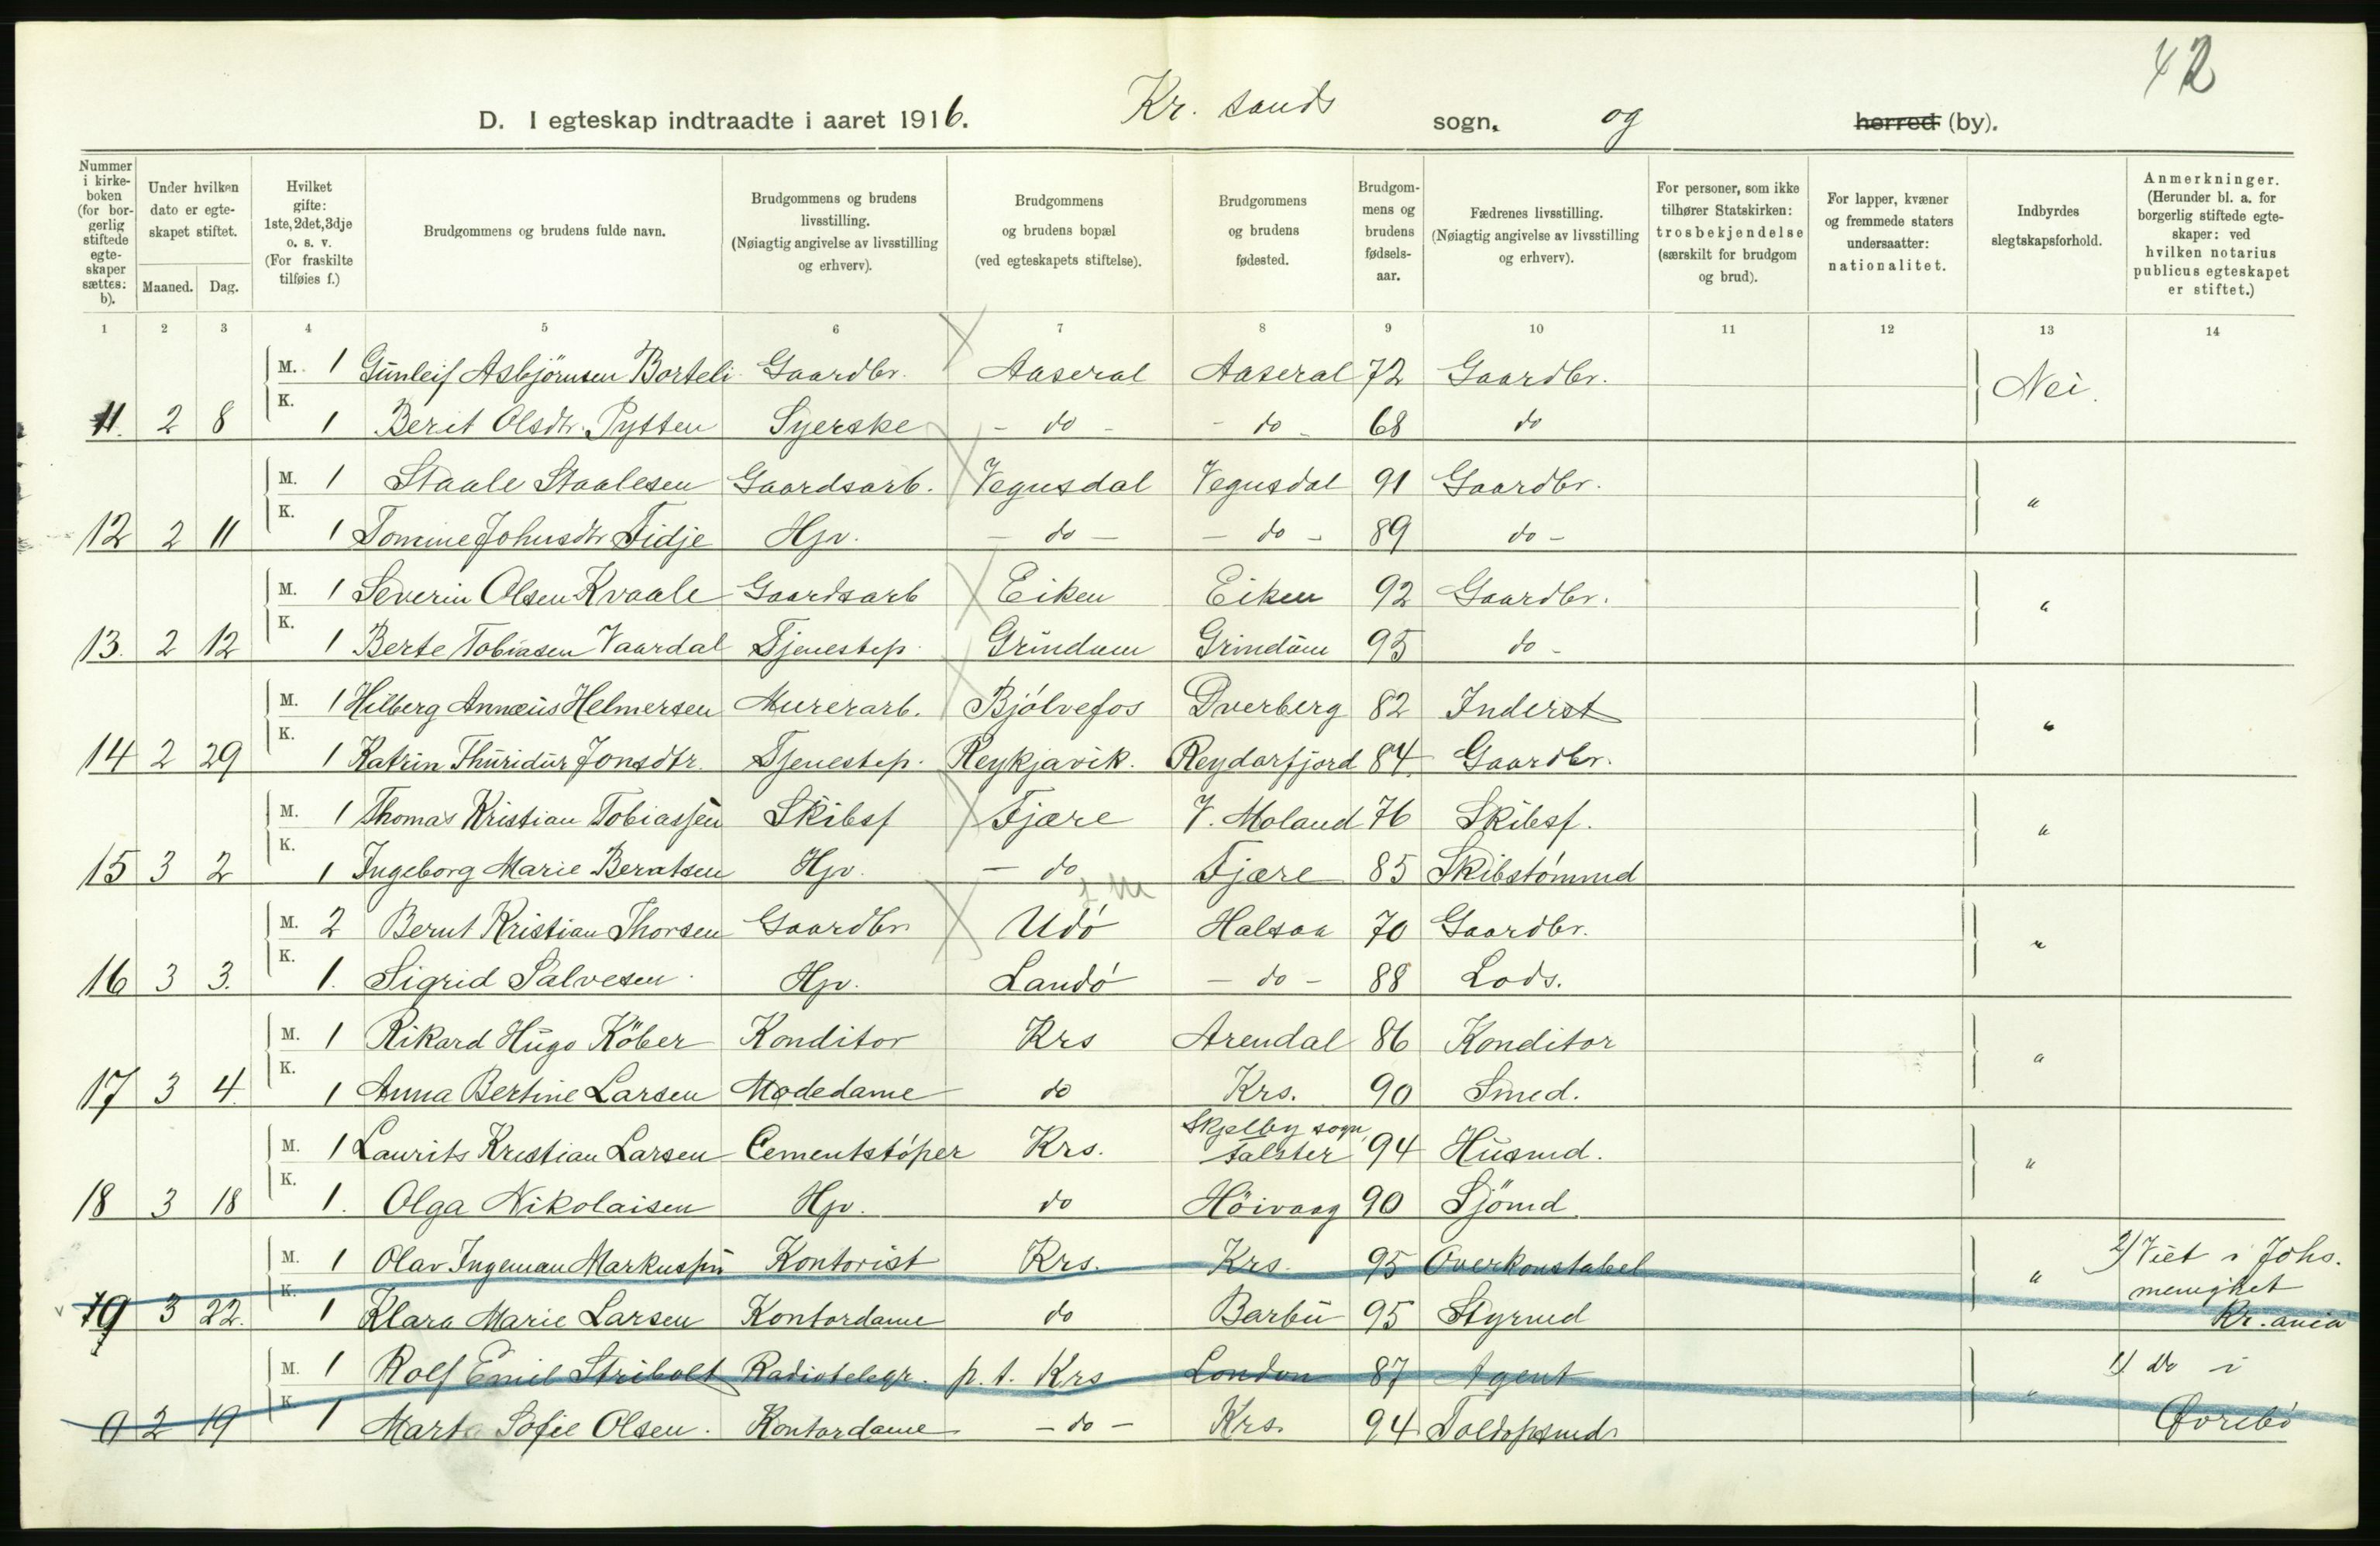 42
D. I egteskap indtraadte i aaret 1916. Kr. sands sogn, og herred (by).
Nummer i kirkeboken (for borgerlig stiftede egteskaper sættes: b). Under hvilken dato er egteskapet stiftet. Maaned. Dag. Hvilket gifte: 1ste, 2det, 3dje o. s. v. (For fraskilte tilføies f.) Brudgommens og brudens fulde navn. Brudgommens og brudens livsstilling. (Nøiagtig angivelse av livsstilling og erhverv). Brudgommens og brudens bopæl (ved egteskapets stiftelse). Brudgommens og brudens fødested. Brudgommens og brudens fødselsaar. Fædrenes livsstilling. (Nøiagtig angivelse av livsstilling og erhverv). For personer, som ikke tilhører Statskirken: trosbekjendelse (særskilt for brudgom og brud). For lapper, kvæner og fremmede staters undersaatter: nationalitet. Indbyrdes slegtskapsforhold. Anmerkninger. (Herunder bl. a. for borgerlig stiftede egteskaper: ved hvilken notarius publicus egteskapet er stiftet.)
1 2 3 4 5 6 7 8 9 10 11 12 13 14
M. 1 Gunleif Asbjørnsen Borteli Gaardbr. Aaseral Aaseral 72 Gaardbr. Nei.
11. 2 8 K. 1 Berit Olsdtr. Pytten Syerske - do - - do - 68 do
M. 1 Staale Staalesen Gaardsarb. Vegusdal Vegusdal 91 Gaardbr. "
12 2 11 K. 1 Tomine Johnsdtr Tidje Hjv. - do - - do - 89 do -
M. 1 Severin Olsen Kvaale Gaardsarb Eiken Eiken 92 Gaardbr. "
13. 2 12 K. 1 Berte Tobiasen Vaardal Tjenestep. Grindum Grindum 95 do -
M. 1 Hilberg Annæus Helmersen Murerarb. Bjölvefos Dverberg 82 Inderst "
14 2 29 K. 1 Katrin Thuridur Jonsdtr. Tjenestep. Reykjavik. Reydarfjord 84. Gaardbr.
M. 1 Thomas Kristian Tobiassen Skibsf Fjære V. Moland 76 Skibsf. "
15 3 2 K. 1 Ingeborg Marie Berntsen Hjv. - do Fjære 85 Skibstömmd
M. 2 Bernt Kristian Thorsen Gaardbr. Udö Halsaa 70 Gaardbr. "
16 3 3. K. 1. Sigrid Salvesen. Hjv. Landö - do - 88 Lods.
M. 1 Rikard Hugo Köber Konditor Krs Arendal 86 Konditor "
17 3 4. K. 1 Anna Bertine Larsen Modedame do Krs. 90 Smed.
M. 1 Laurits Kristian Larsen Cementstöper Krs. Skjelby sogn, Falster 94 Husmd. "
18 3 18 K. 1. Olga Nikolaisen Hjv. do Höivaag 90 Sjömd.
M. 1 Olav Ingeman Markussen Kontorist Krs. Krs. 95 Overkonstabel " 2) Viet i Johs. menighet
19 3 22. K. 1 Klara Marie Larsen Kontordame do Barbu 95 Styrmd Kr.ania
M. 1 Rolf Emil Stribolt Radiotelegr. p.t. Krs London 87 Agent " 1) do i
9 2 19 K. 1 Marta Sofie Olsen. Kontordame - do - Krs. 94 Toldopsmd. Øvrebö